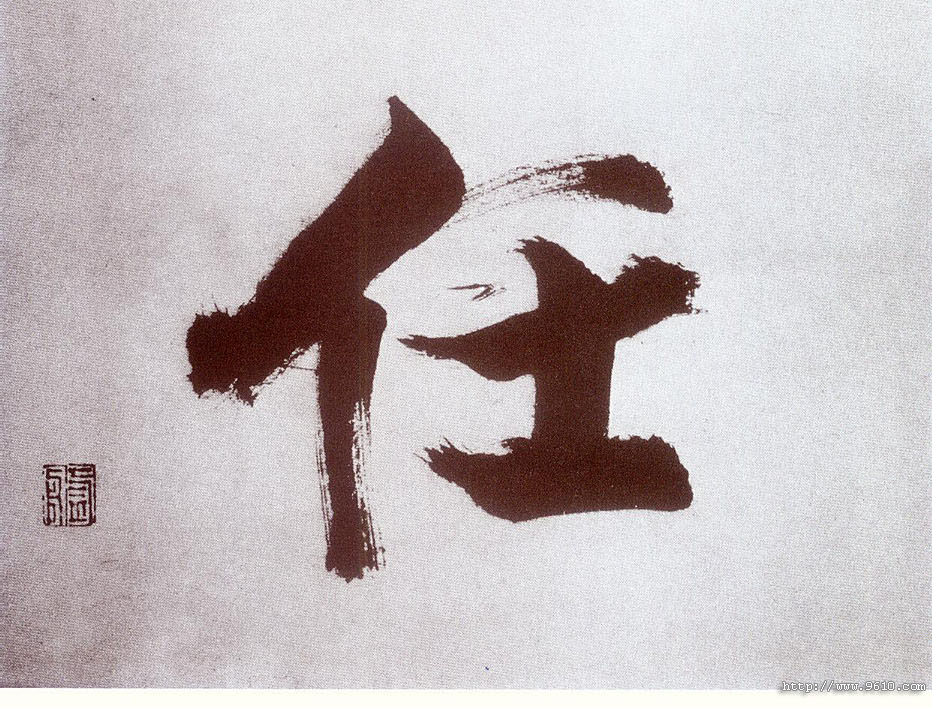 任
http://www.9610.com